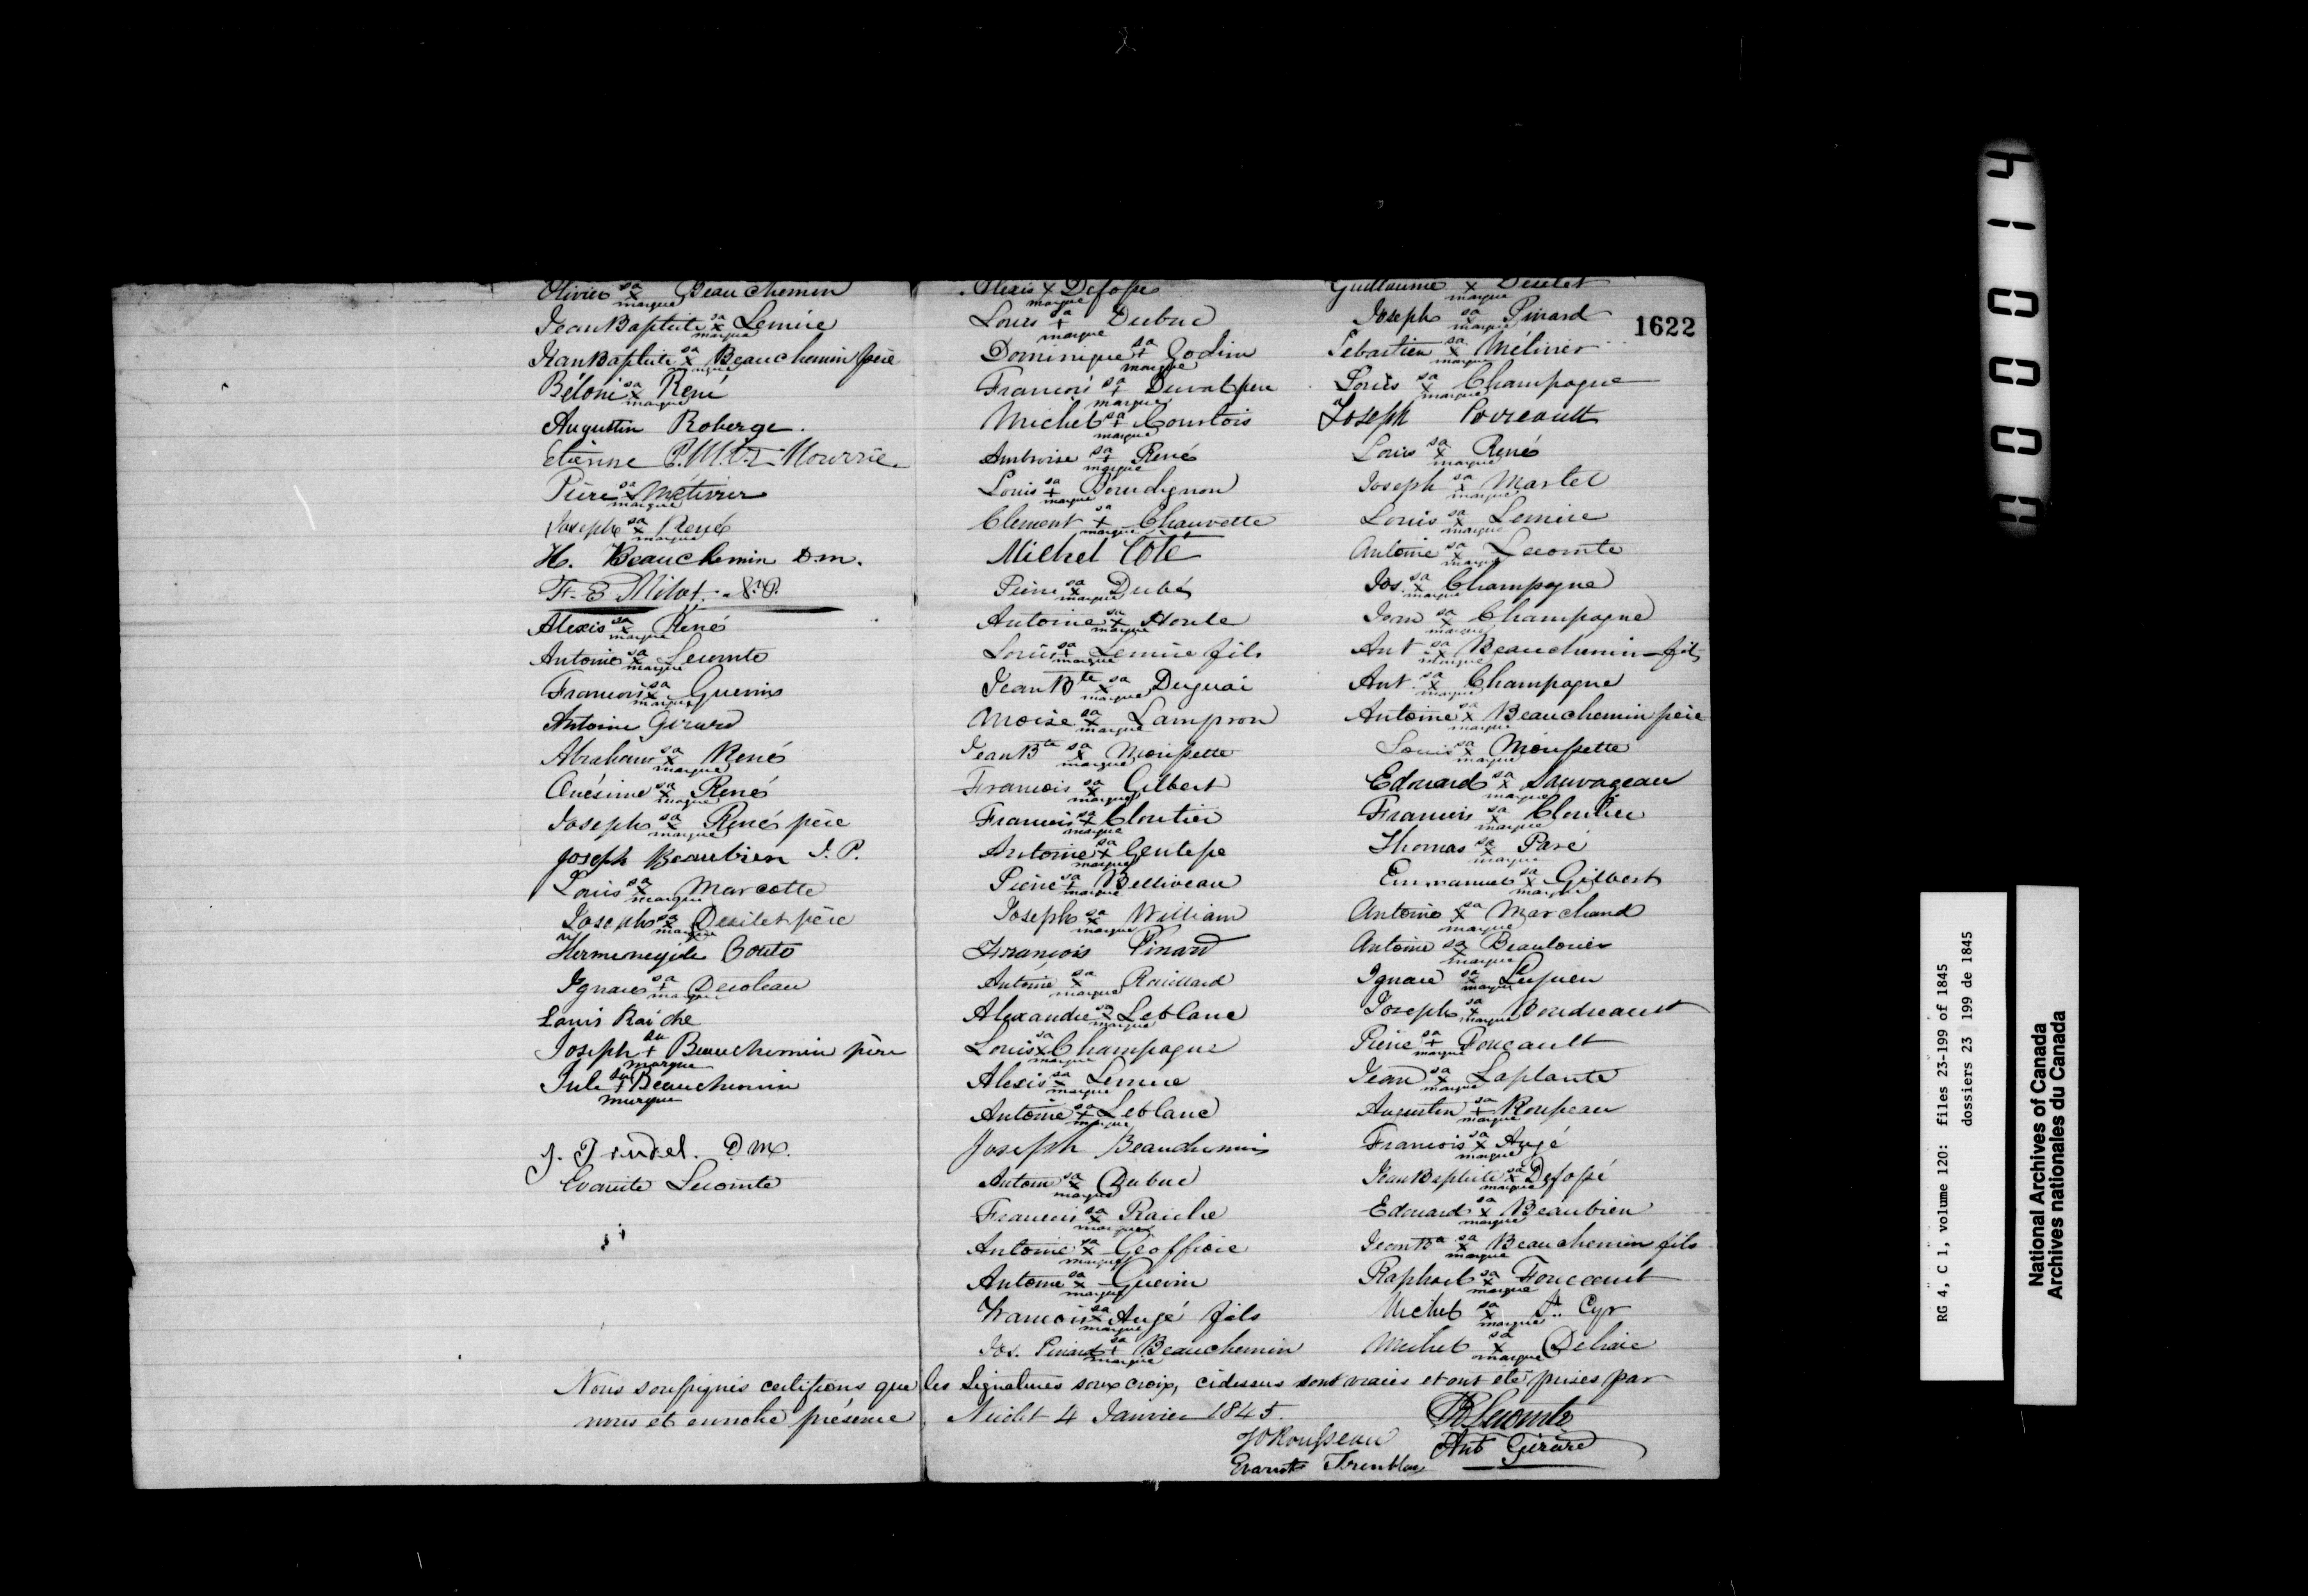 Olivier sa x marque Beauchemin
Jean Baptiste sa x marque Lemire
Jean Baptiste sa x marque Beauchemin père
Béloni sa x marque René
Augustin Roberge.
Etienne
Pierre sa x marque Métivier
Joseph sa x marque René
H. Beauchemin D.m.
F. E Milot. N.P.
Alexis sa x marque René
Antoine sa x marque Lecomte
Francois sa x marque Guerin
Antoine Girard
Abraham sa x marque René
Onésime sa x marque René
Joseph sa x marque René père
Joseph Beaubien J. P.
Louis sa x marque Marcotte
Joseph sa x marque Desilet père
Hermenegilde
Ignace sa + marque
Louis Raiche
Joseph sa + marque Beauchemin père
Jule sa + marque Beauchemin
J. Trudel. D.M.
Evariste Lecomte
Alexis x marque Defossé
Louis sa + marque Dubuc
Dominique sa + marque Godin
Francois sa + marque Duval père
Michel sa + marque Courtois
Ambroise sa + marque René
Louis sa + marque
Clement sa + marque Chaurette
Michel Coté
Pierre sa x marque Dubé
Antoine sa x marque Houle
Louis sa x marque Lemire fils
Jean Bte sa x marque Duguai
Moïse sa x marque Lampron
Jean Bte sa x marque Mousette
Francois sa x marque Gilbert
Francois sa x marque Cloutier
Antoine sa x marque Gentesse
Pierre sa + marque Belliveau
Joseph sa x marque William
François Pinard
Antoine sa x marque Rouillard
Alexandre sa x marque Leblanc
Louis sa x marque Champagne
Alexis sa x marque Lemire
Antoine sa + marque Leblanc
Joseph Beauchemin
Antoine sa x marque Dubuc
Francois sa x marque Raiche
Antoine sa x marque Geoffroie
Antoine sa x marque Guerin
Francois sa x marque Augé fils
Jos. Pinard sa + marque Beauchemin
Guillaume x marque Desilet
Joseph sa x marque Pinard
1622
Sebastien sa x marque Métivier
Louis sa x marque Champagne
Joseph
Louis sa x marque René
Joseph sa x marque Martel
Louis sa x marque Lemire
Antoine sa x marque Lecomte
Jos. sa x marque Champagne
Jean sa x marque Champagne
Ant sa x marque Beauchemin fils
Ant. sa x marque Champagne
Antoine sa x marque Beauchemin père
Louis sa x marque Mousette
Edouard sa x marque Sauvageau
Francois sa x marque Cloutier
Thomas sa x marque Paré
Emmanuel sa x marque Gilbert
Antoine sa x marque Marchand
Antoine sa x marque
Ignace sa x marque Lupien
Joseph sa x marque Boudreault
Pierre sa + marque Foucault
Jean sa x marque Laplante
Augustin sa + marque Rousseau
Francois sa x marque Augé
Jean Baptiste sa x marque Defossé
Edouard sa x marque Beaubien
Jean Bte sa x marque Beauchemin fils
Raphael sa x marque Foucault
Michel sa x marque St. Cyr
Michel sa x marque
Nous soussignés certifions que les signatures sous croix, cidessus sont vraies et ont été prises par
nous et en notre présence. Nicolet 4 Janvier 1845.
Lecomte
Rousseau
Ant Girard
Evariste Tremblay
00014
RG 4, C 1, volume 120: files 23-199 of 1845
dossiers 23 199 de 1845
National Archives of Canada
Archives nationales du Canada